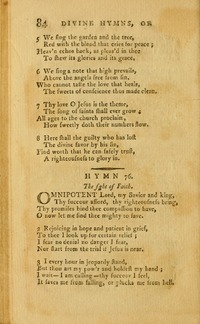 84 DIVINE HYMNS, OR
5 We sing the garden and the tree,
Red with the blood that cries for peace;
Heav'n echos back, as pleas'd in thee
To shew its glories and its grace.
6 We sing a note that high prevails,
Above the angels free from sin,
Who cannot taste the love that heals,
The sweets of conscience thus made clean.
7 Thy love O Jesus is the theme,
The song of saints shall ever grow;
All ages to the church proclaim,
How sweetly doth their numbers flow.
8 Here shall the guilty who has lost
The divine favor by his sin,
Find worth that he can safely trust,
A righteousness to glory in.
HYMN 76.
The fight of Faith.
OMNIPOTENT Lord, my Savior and king,
Thy succour afford, thy righteousness bring,
Thy promises bind thee compassion to have,
O now let me find thee mighty to save.
2 Rejoicing in hope and patient in grief,
To thee I look up for certain relief;
I fear no denial no danger I fear,
Nor start from the trial if Jesus is near.
3 I every hour in jeopardy stand,
But thou art my pow'r and holdest my hand;
I wait—I am calling—thy succour I feel,
It saves me from falling, or plucks me from hell.